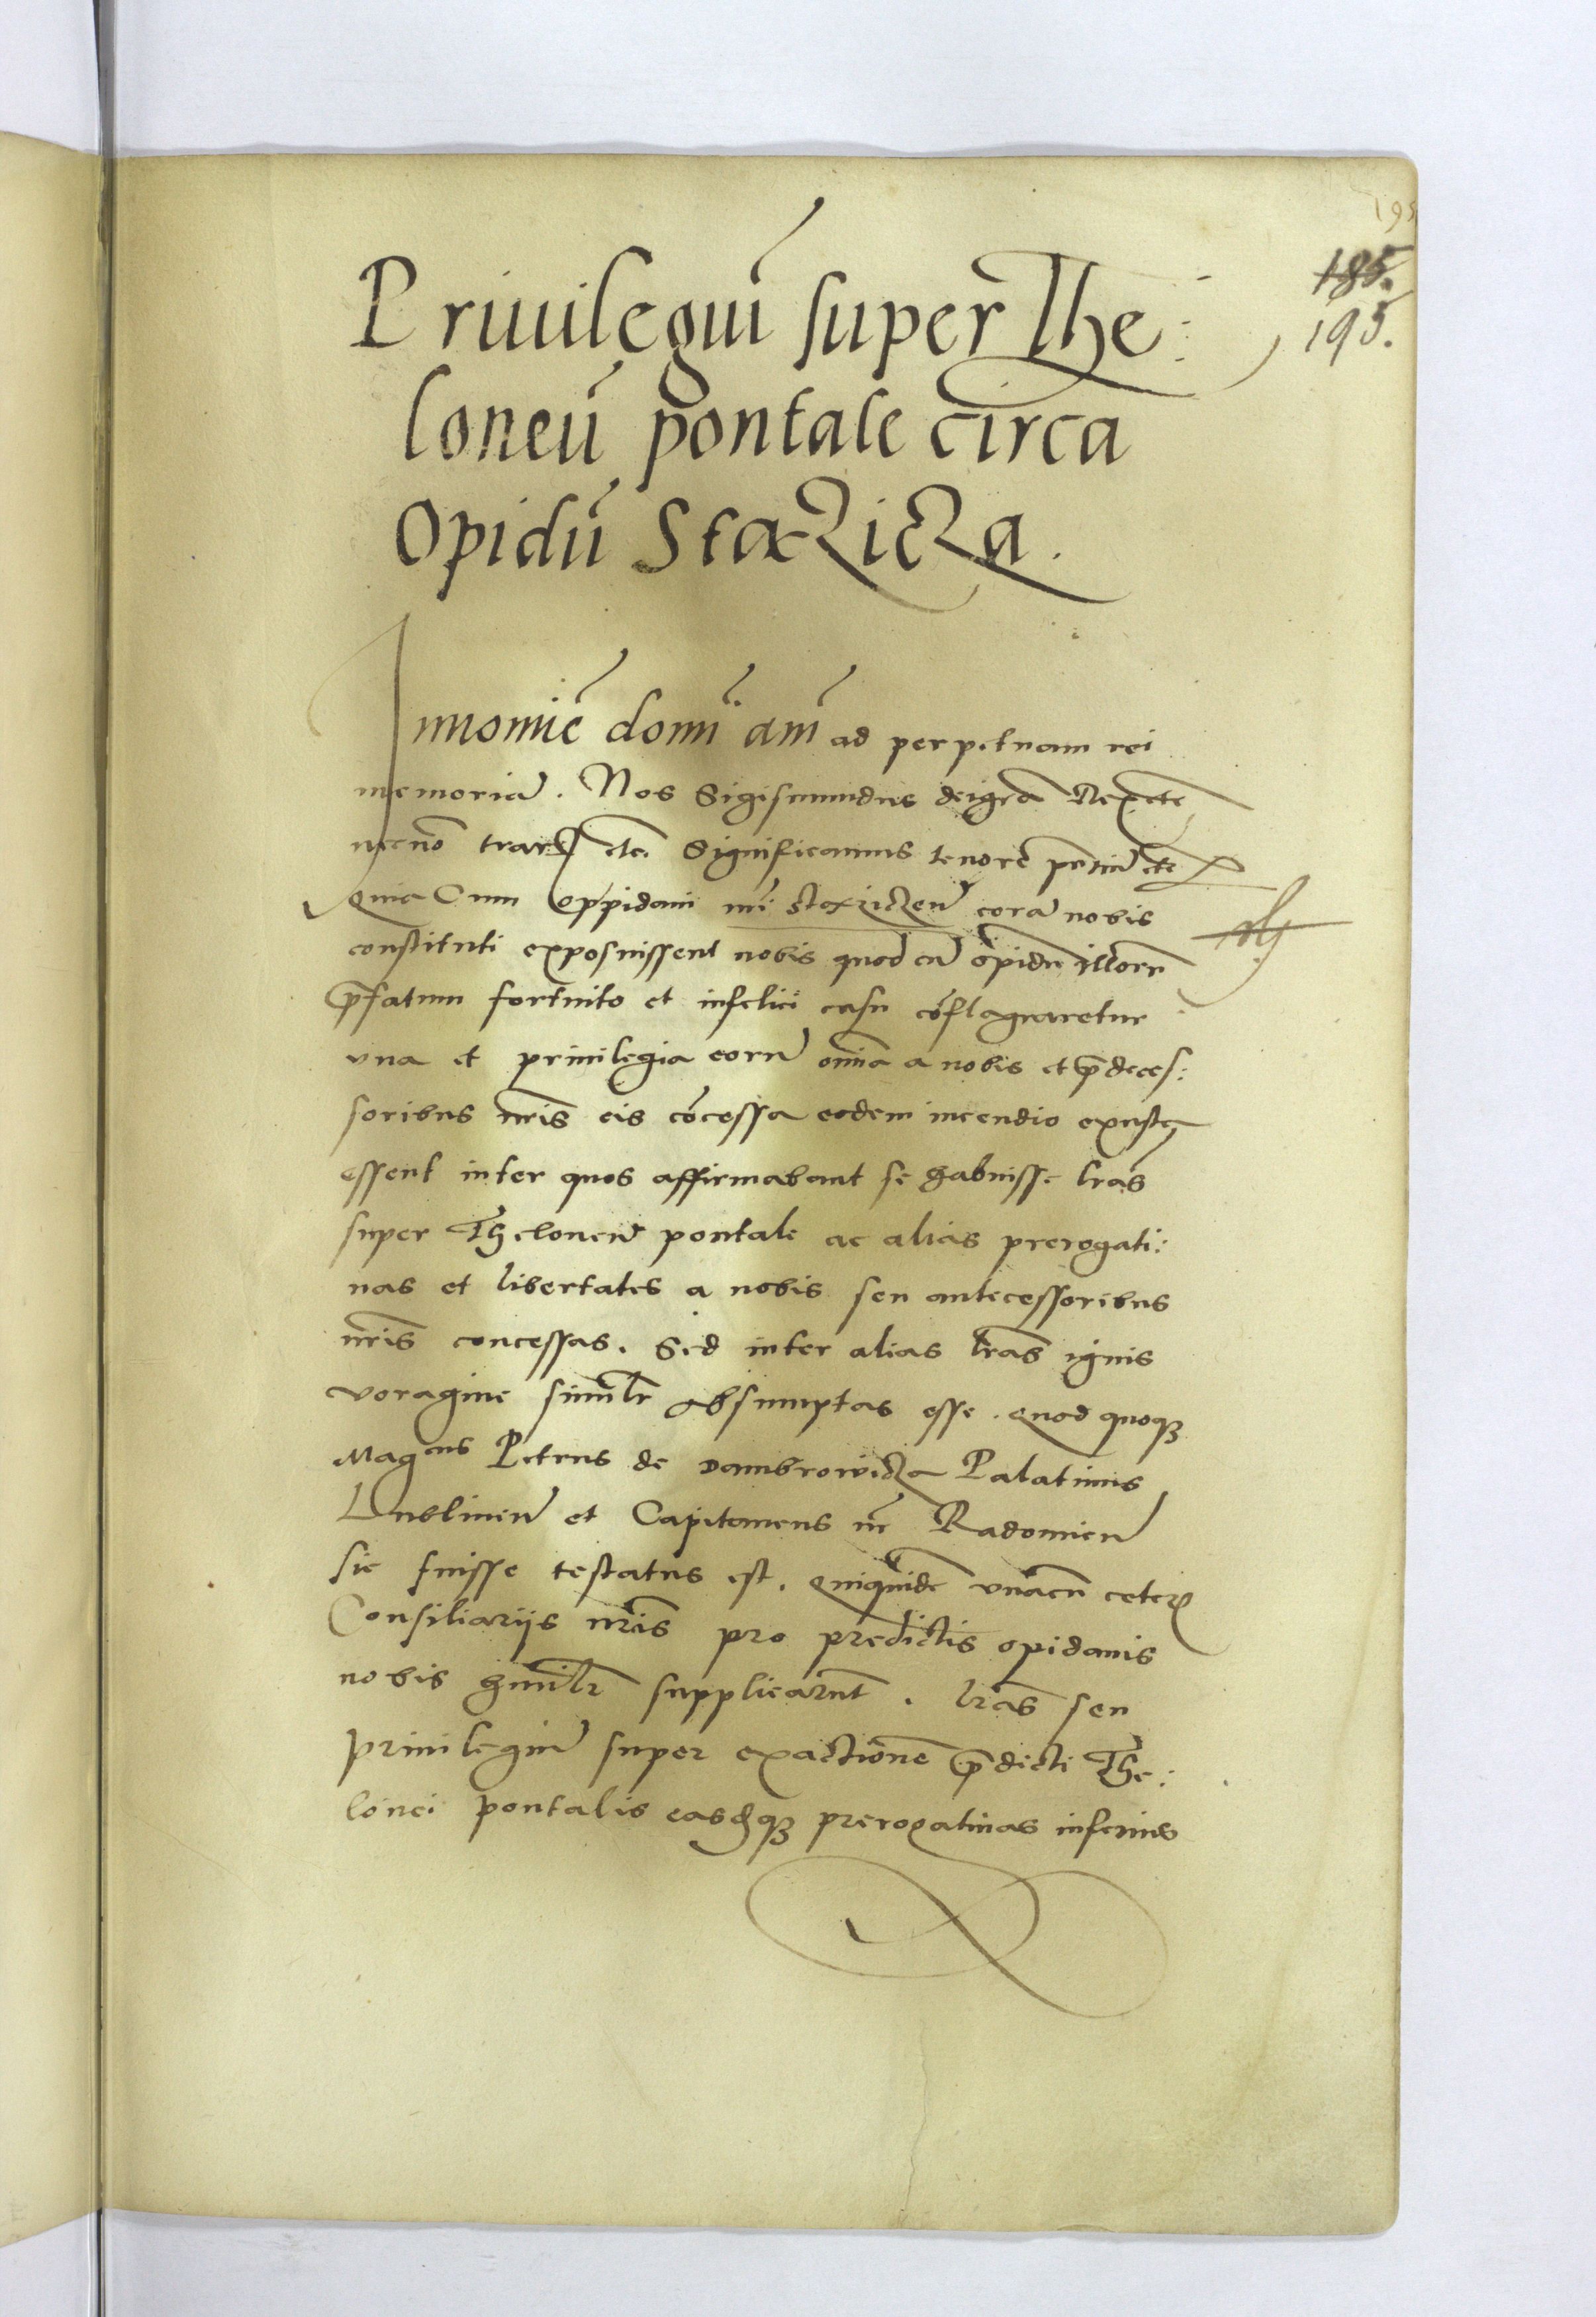 195
185.
195.
Priuilegiũ super The:
loneũ pontale circa
Opidũ StaxZicZa.
Innomiẽ domĩ amẽ ad perpetuam rei
memoriã. Nos Sigismundus deigrã Rex etc
necnõ trar. etc. Significamus tenorẽ pñtiũ etc
quia Cum oppidani nrĩ StaxZicZeñ corã nobis
constituti exposuissent nobis quod cũ opidũ illorũ
p̃fatum fortuito et infelici casu cõflagraretur
vna et priuilegia eorũ omĩa a nobis et p̃deces:
soribus nrĩs eis cõcessa eodem incendio exusta
essent inter quos affirmabant se habuisse lrãs
super Theloneũ pontale ac alias prerogati:
uas et libertates a nobis seu antecessoribus
nrĩs concessas. Sed inter alias lrãs ignis
voragine similr̃ absumptas esse. quod quoqʒ
Magcus Petrus de Dambrowicza Palatinus
Lublineñ et Capitaneus nr̃ Radomieñ
sic fuisse testatus est. quiquidẽ vnacũ ceteris
Consiliarijs nrĩs pro predictis opidanis
nobis humilr̃ supplicarũt. lrãs seu
priuilegiũ super exactionẽ p̃dicti The:
lonei pontalis easdqʒ prerogatiuas inferius